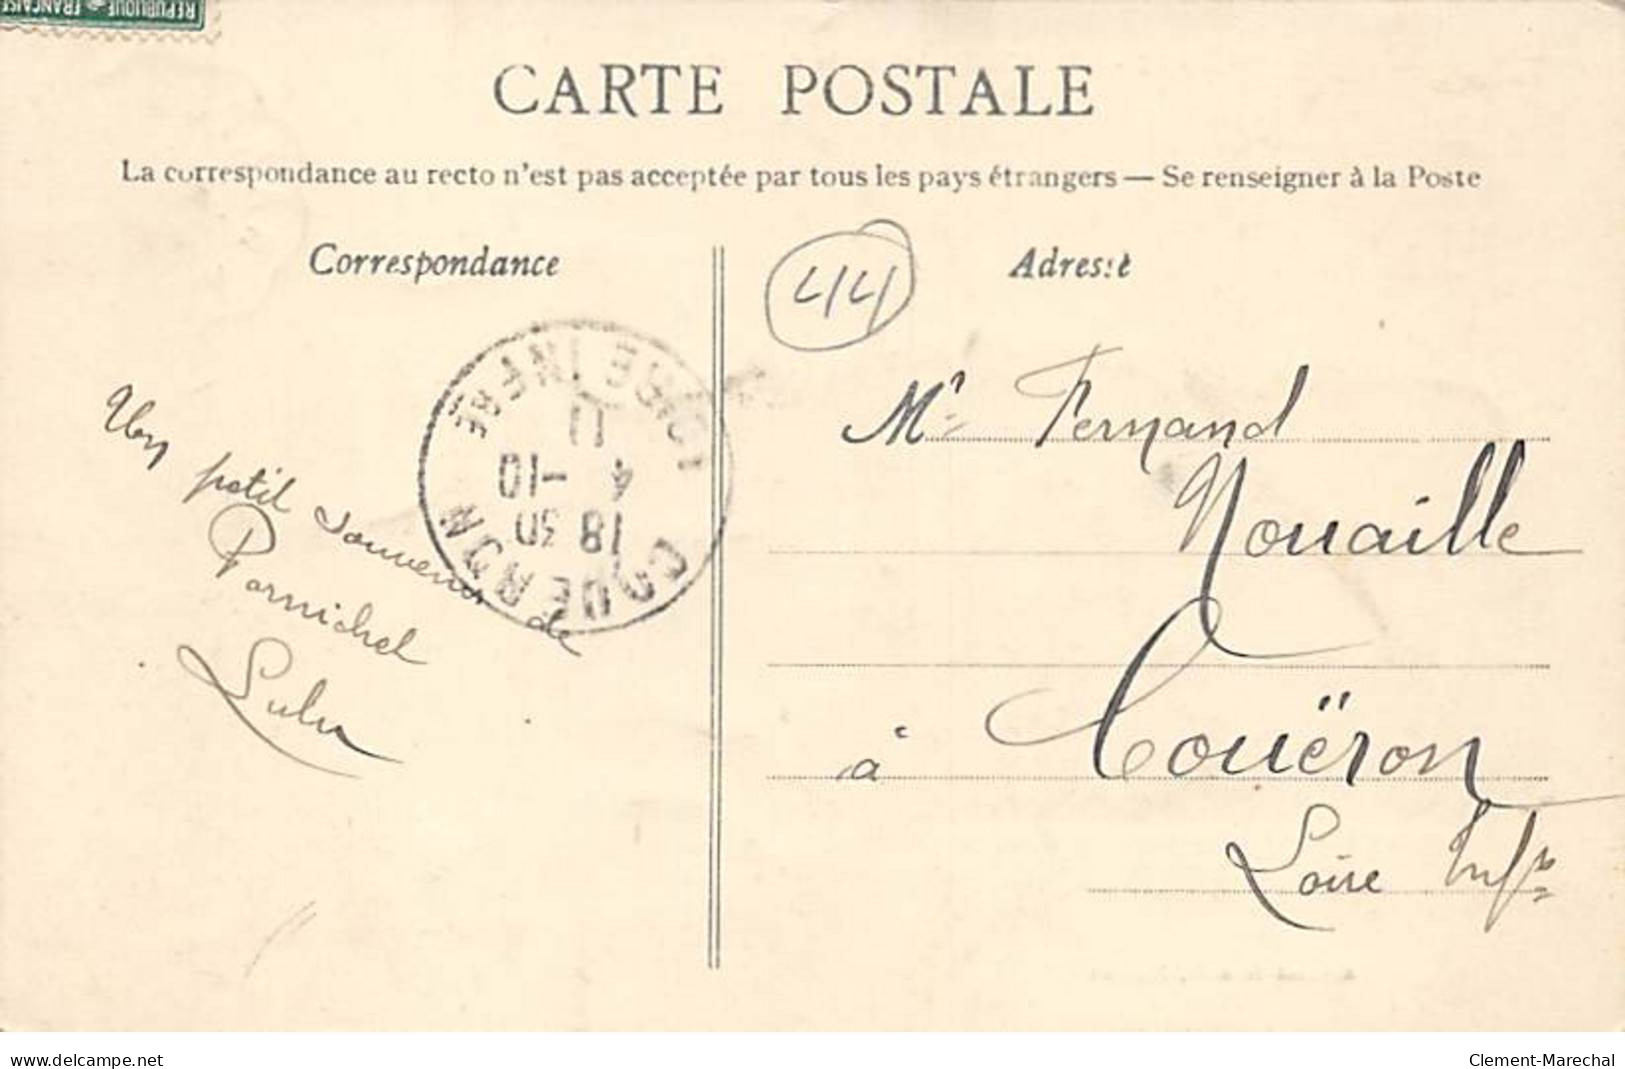 REPUBLIQUE FRANÇAISE
CARTE POSTALE
La correspondance au recto n'est pas acceptée par tous les pays étrangers — Se renseigner à la Poste
Correspondance
Un petit souvenir de
Pornichet
Lulu
COUERON
18 30
4 -10
11
LOIRE INFRE
44
Adresse
Mr Fernand
Nouaille
à Couëron
Loire Infre
www.delcampe.net
Clement-Marechal